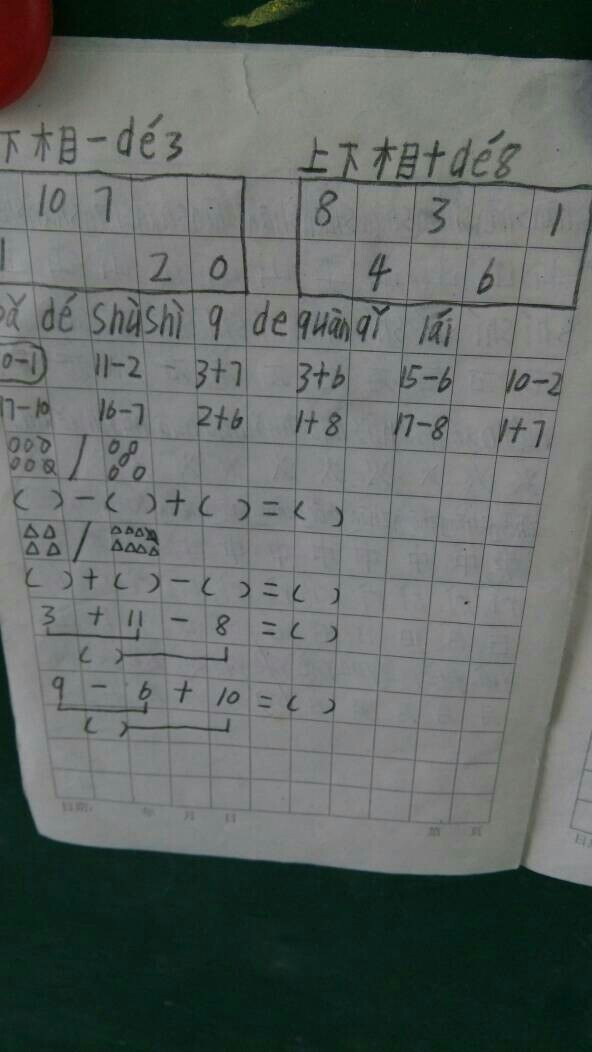 下相-dé3
上下相+dé8
10 7
1 2 0
8 3 1
4 6
bǎ dé shù shì 9 de quān qǐ lái
0-1 11-2 3+7 3+6 15-6 10-2
17-10 16-7 2+6 1+8 17-8 1+7
( )-( )+( )=( )
( )+( )-( )=( )
3 + 11 - 8 =( )
( )
9 - 6 + 10 =( )
( )
日期: 年 月 日 第 页